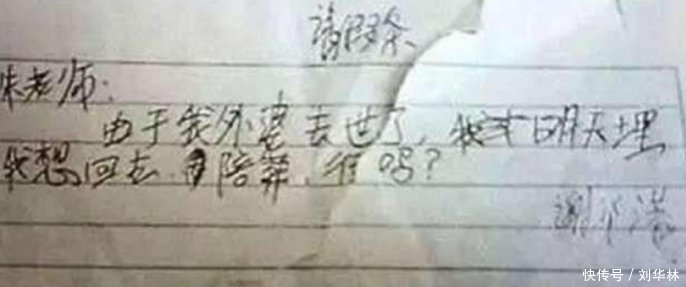 请假条
朱老师:
由于我外婆去世了,我 明天埋
我想回去陪葬,行吗?
谢
快传号 / 刘华林